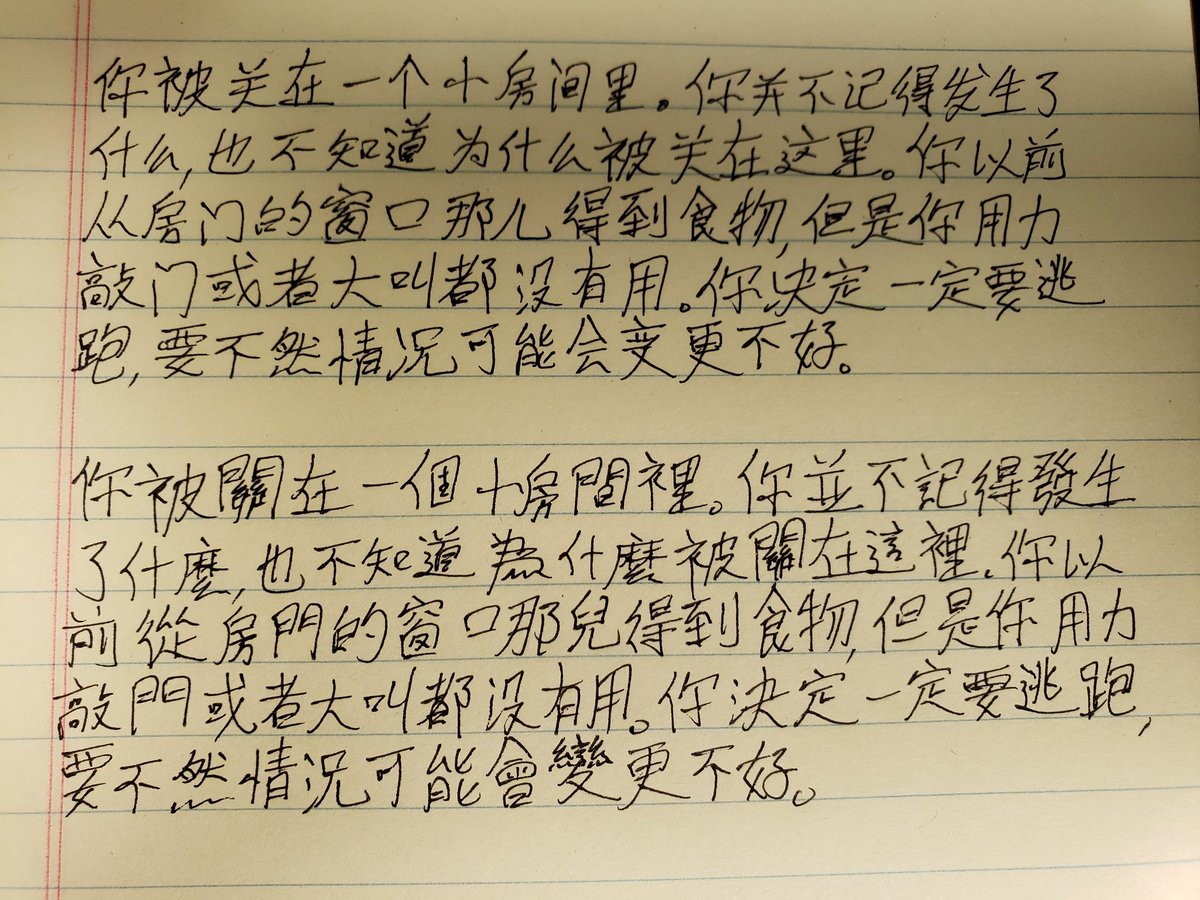 你被关在一个小房间里。你并不记得发生了
什么,也不知道为什么被关在这里。你以前
从房门的窗口那儿得到食物,但是你用力
敲门或者大叫都没有用。你决定一定要逃
跑,要不然情况可能会变更不好。
你被關在一個小房間裡。你並不記得發生
了什麼,也不知道為什麼被關在這裡。你以
前從房門的窗口那兒得到食物,但是你用力
敲門或者大叫都没有用。你決定一定要逃跑,
要不然情況可能會變更不好。